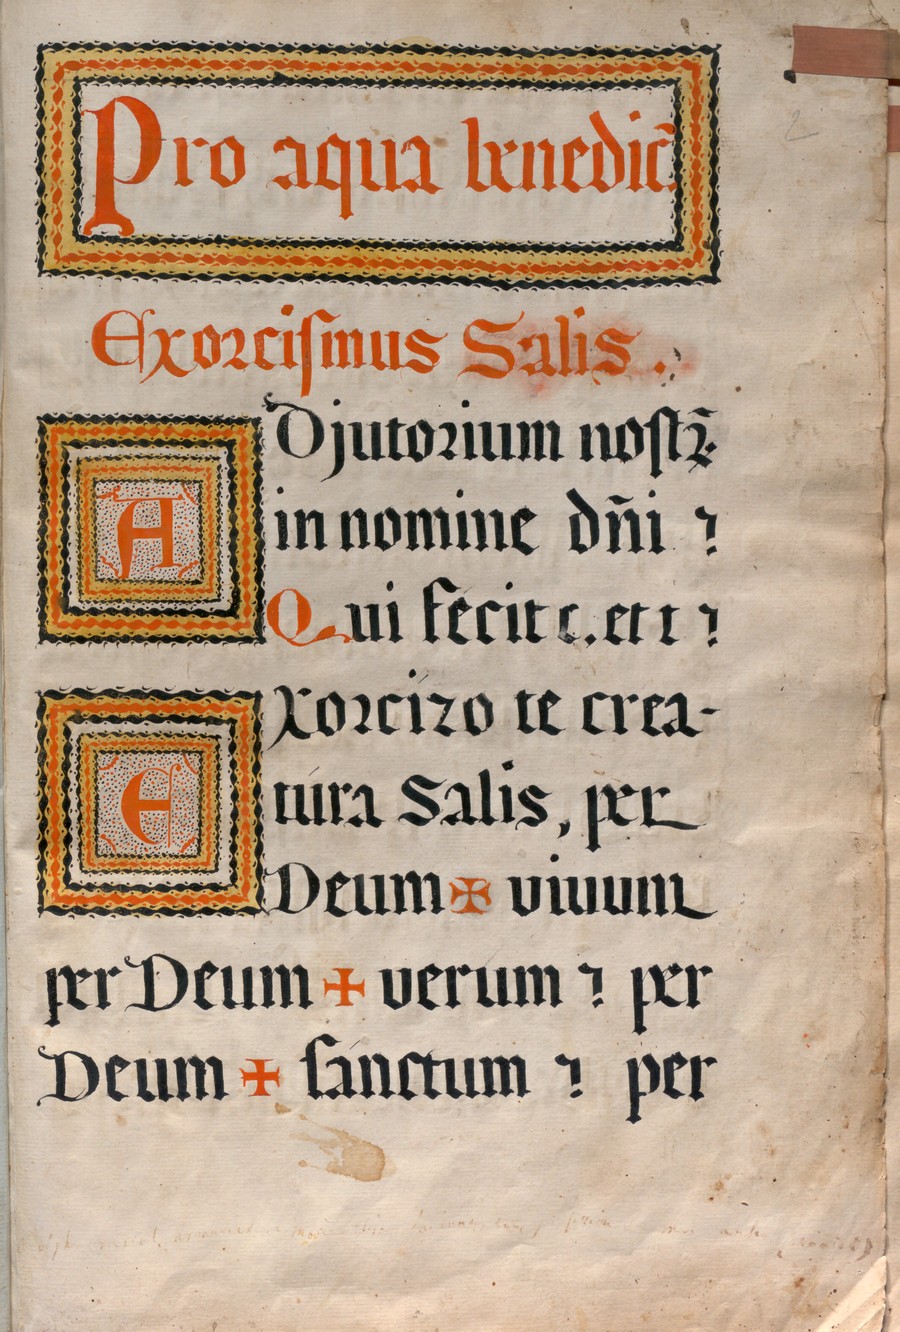 2
Pro aqua benedic̃.
Exorciſmus Salis.
ADjutorium noſtr̃.
in nomine dñi ?
Qui fecit c. et t ?
Exorcizo te crea-
tura Salis, per
Deum ✠ viuum
per Deum ✠ verum ? per
Deum ✠ ſanctum ? per